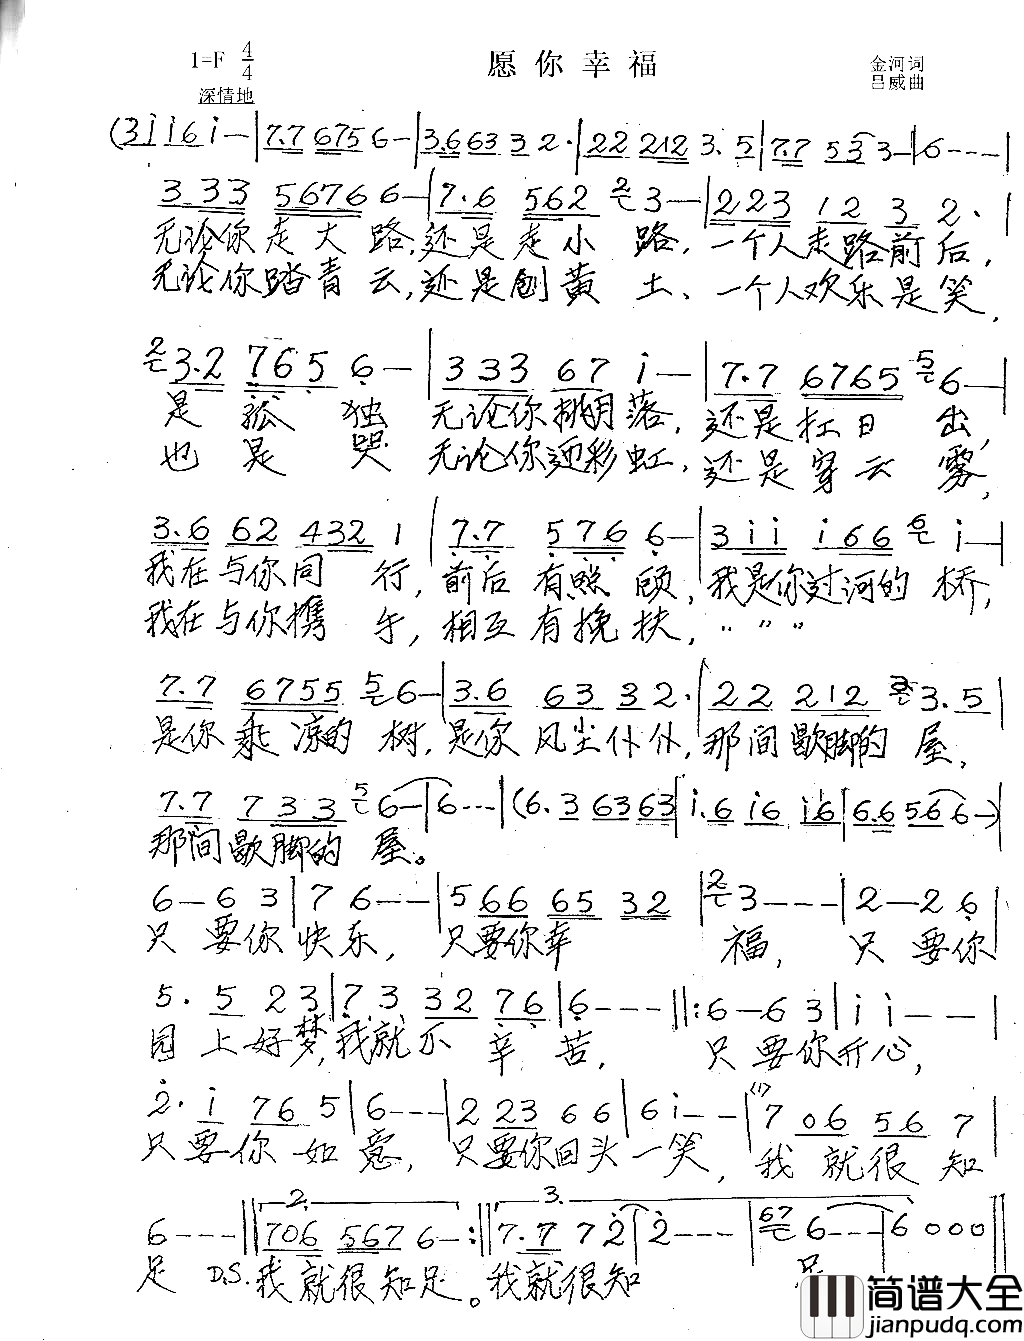 1=F 4/4 愿你幸福 金河词
深情地 吕威曲
(3i i6 i—|7.7 6756—|3.6 63 32.|22 212 3.5|7.7 533—|6---|
3 33 5676 6—|7.6 562 3—|223 12 3 2.|
无论你走大路,还是走小路,一个人走路前后,
无论你踏青云,还是创黄土、一个人欢乐是笑,
3.2 765 6—|333 67 i—|7.7 6765 6—|
是孤独 无论你挑月落,还是扛日出,
也是哭 无论你迎彩虹,还是穿云雾,
3.6 62 432 1|7.7 5766—|3ii i66 i—|
我在与你同行,前后有照顾,我是你过河的桥,
我在与你携手,相互有挽扶,〃〃〃
7.7 6755 6—|3.6 63 32.|22 212 3.5|
是你乘凉的树,是你风尘仆仆,那间歇脚的屋,
7.7 733 6—|6---|(6.3 6363|i.6 i6 i6|6.6 56 6—)|
那间歇脚的屋。
6—6 3|7 6--|5 66 65 32|3---|2—2 6|
只要你快乐,只要你幸福,只要你
5. 5 2 3|7 3 32 76|6---‖:6—6 3|i i--|
园上好梦,我就不辛苦,只要你开心,
2. i 76 5|6---|2 23 6 6|6 i--|(1) 7 06 56 7
只要你如意,只要你回头一笑,我就很知
6---‖2. 706 5676—:‖3. 7.7 72|2---|67 6---|6000‖
足 D.S.我就很知足。我就很知 足
简谱大全
jianpudq.com